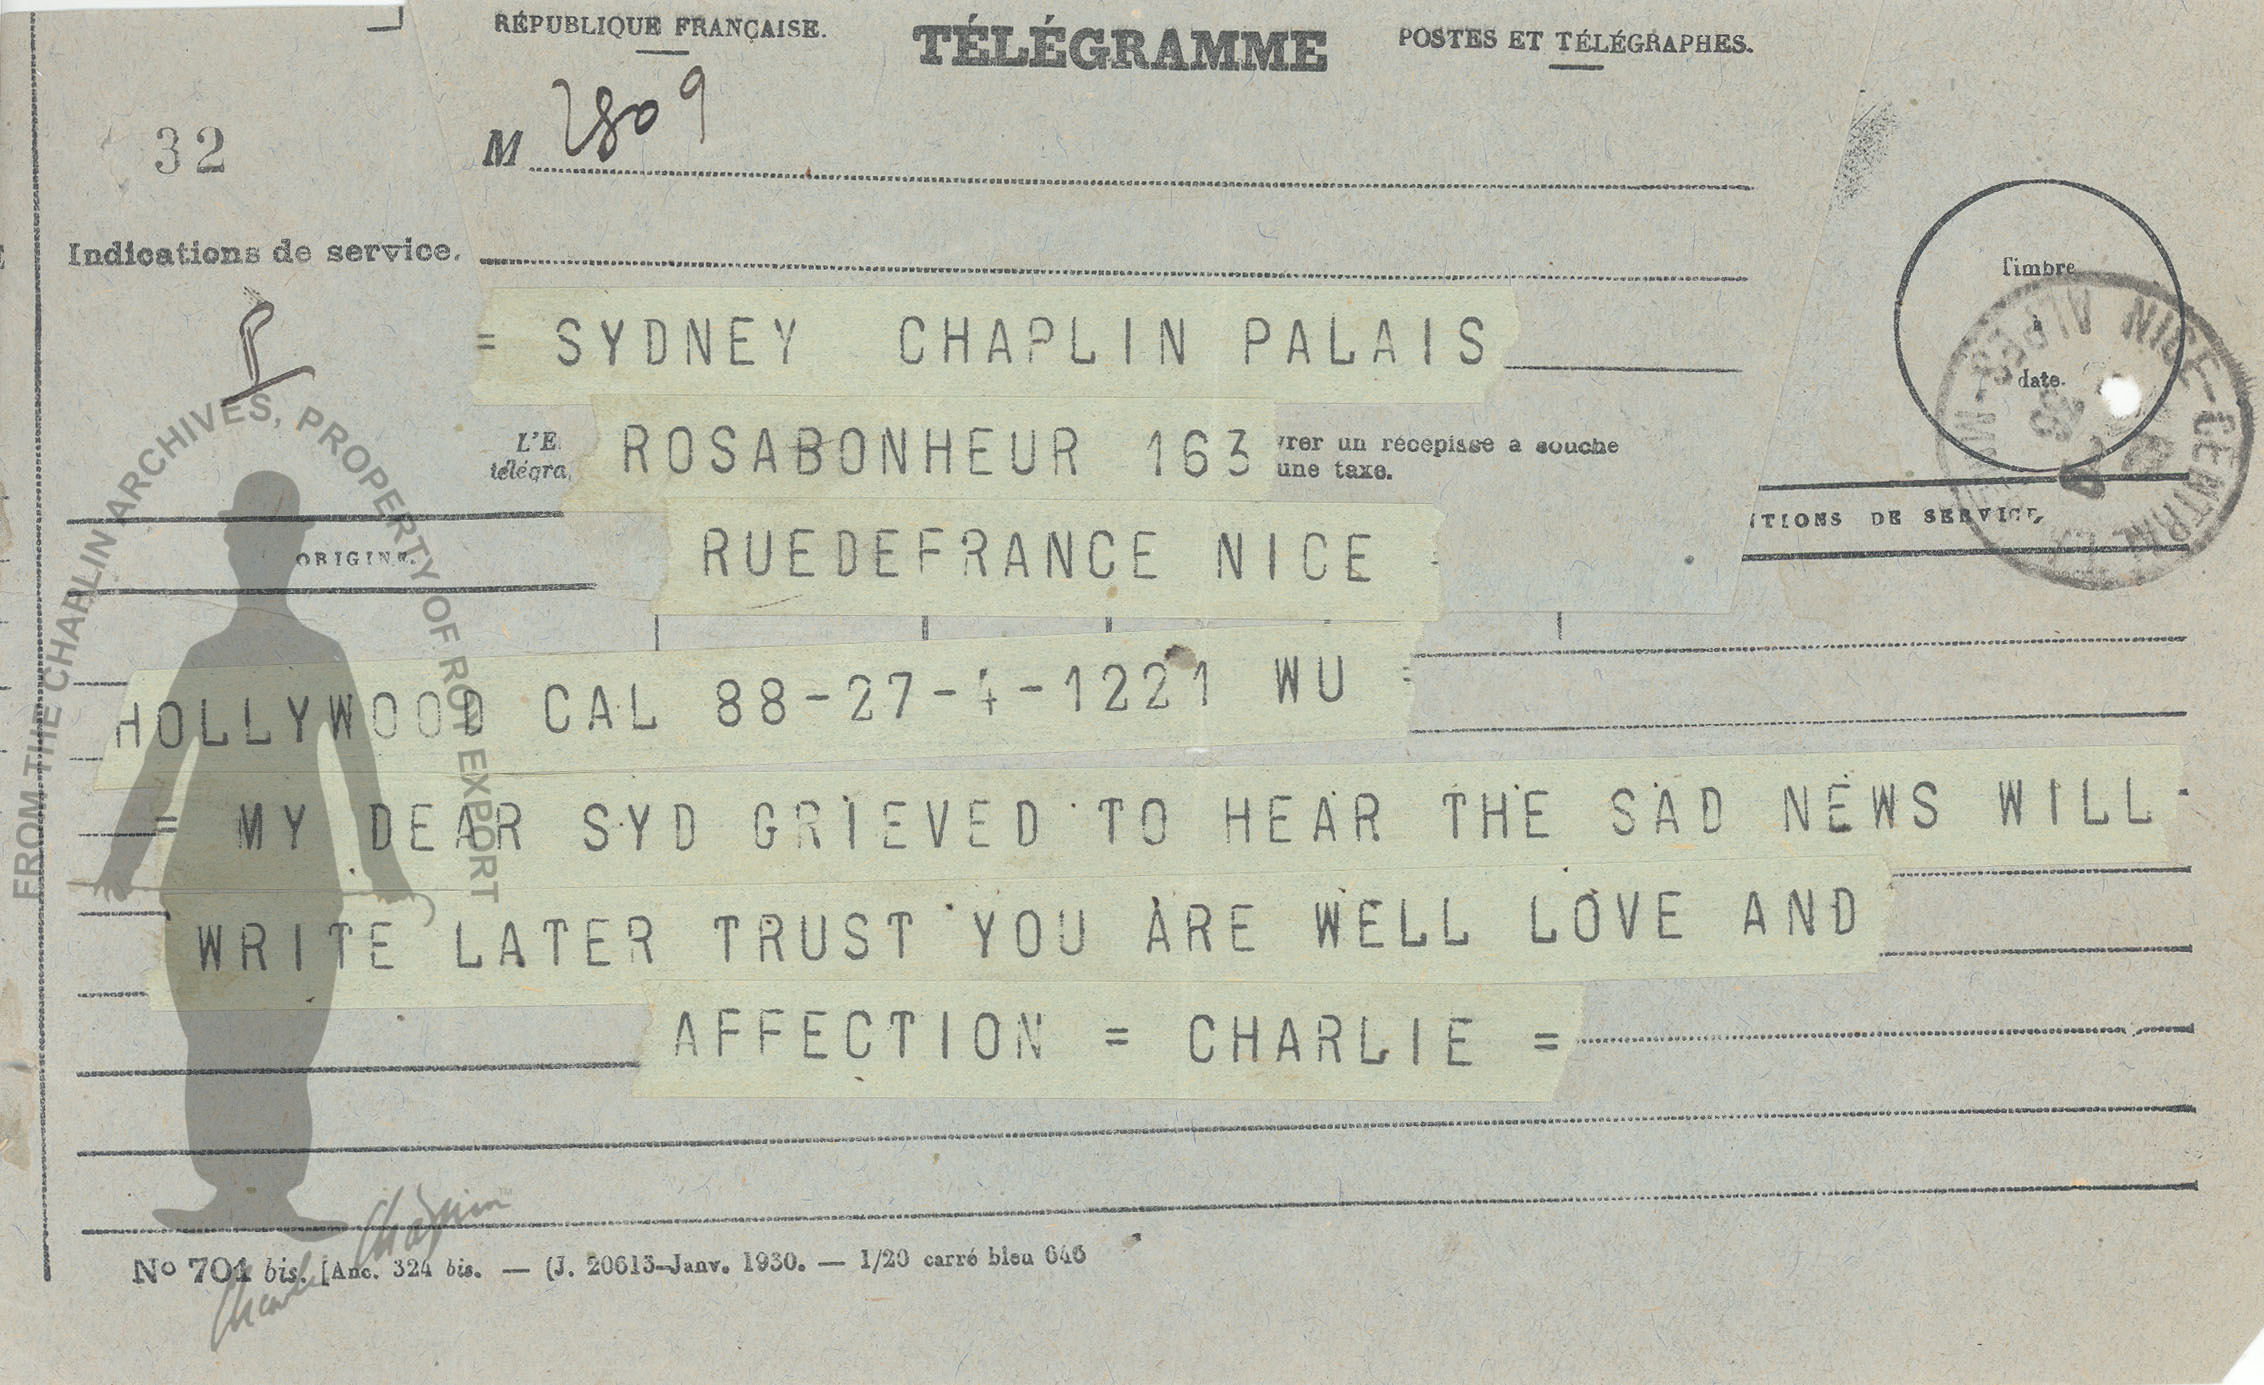 RÉPUBLIQUE FRANÇAISE.
TÉLÉGRAMME
POSTES ET TÉLÉGRAPHES.
32
M 2809
Indications de service.
Timbre
à
date.
NICE-CENTRAL
= SYDNEY CHAPLIN PALAIS
L'E
télégra
ROSABONHEUR 163
vrer un récépissé a souche
une taxe.
RUEDEFRANCE NICE
ORIGINE.
TIONS DE SERVICE,
HOLLYWOOD CAL 88-27-4-1221 WU =
= MY DEAR SYD GRIEVED TO HEAR THE SAD NEWS WILL
WRITE LATER TRUST YOU ARE WELL LOVE AND
AFFECTION = CHARLIE =
No 701 bis. [Anc. 324 bis. — (J. 20613-Janv. 1930. — 1/20 carré bleu 646
FROM THE CHAPLIN ARCHIVES, PROPERTY OF ROY EXPORT
Charlie Chaplin